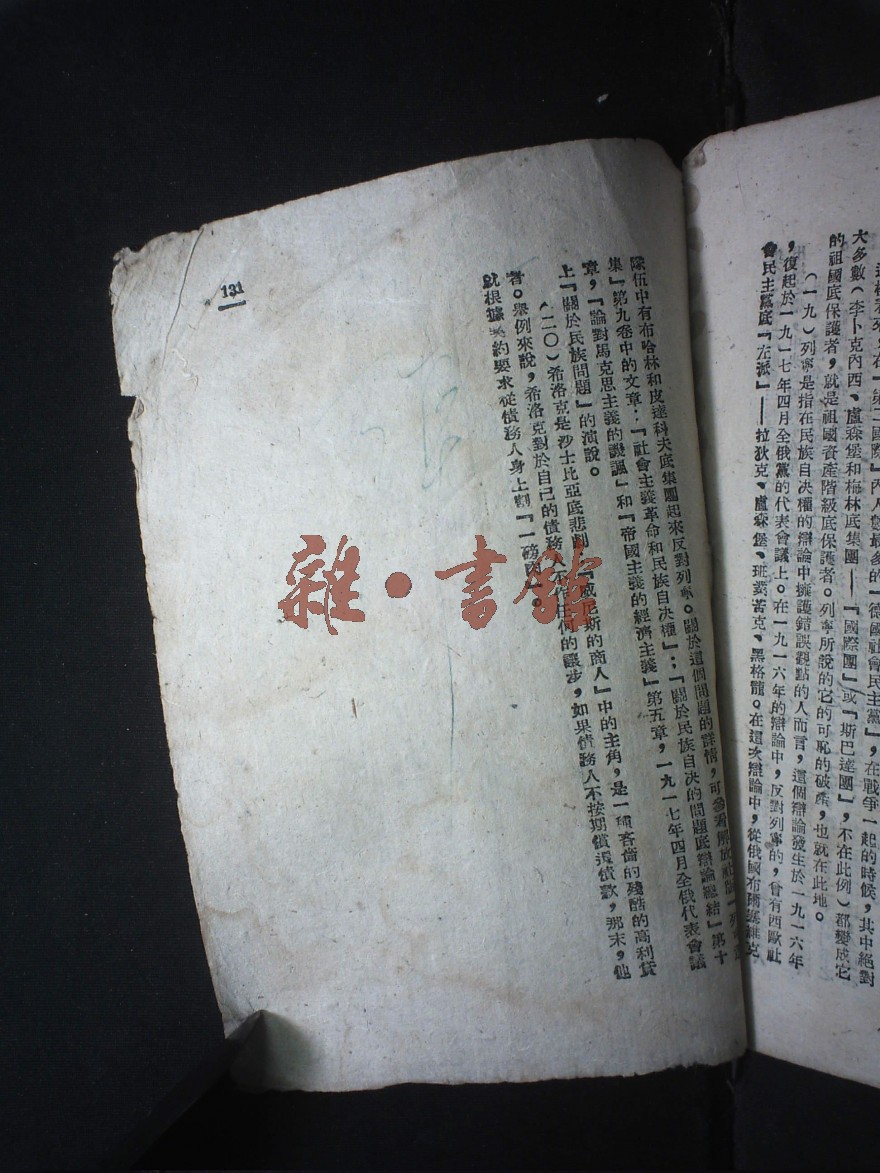 大多數(李卜克內西、盧森堡和梅林底集團——『國際團』或『斯巴達團』,不在此例)都變成它
的祖國底保護者,就是祖國資產階級底保護者。列寧所說的它的可恥的破產,也就在此地。
(一九)列寧是指在民族自决權的辯論中擁護錯誤觀點的人而言,這個辯論發生於一九一六年
,復起於一九一七年四月全俄黨的代表會議上。在一九一六年的辯論中,反對列寧的,曾有西歐社
會民主黨底『左派』——拉狄克、盧森堡、班
苦克、黑格龍。在這次辯論中,從俄國布爾塞維克
隊伍中有布哈林和皮達科夫底集團起來反對列寧。關於這個問題的詳情,可參看解放社版『列
集』第九卷中的文章:『社會主義革命和民族自决權』;『關於民族自决的問題底辯論總結』第十
章,『論對馬克思主義的譏諷』和『帝國主義的經濟主義』第五章,一九一七年四月全俄代表會議
上『關於民族問題』的演說。
(二〇)希洛克是沙士比亞底悲劇『威尼斯的商人』中的主角,是一個吝嗇的殘酷的高利貸
者。舉例來說,希洛克對於自己的債務人不作任何的讓步,如果債務人不按期償還債款,那末,他
就根據契約要求從債務人身上割『一磅肉』。
131
雜·書館